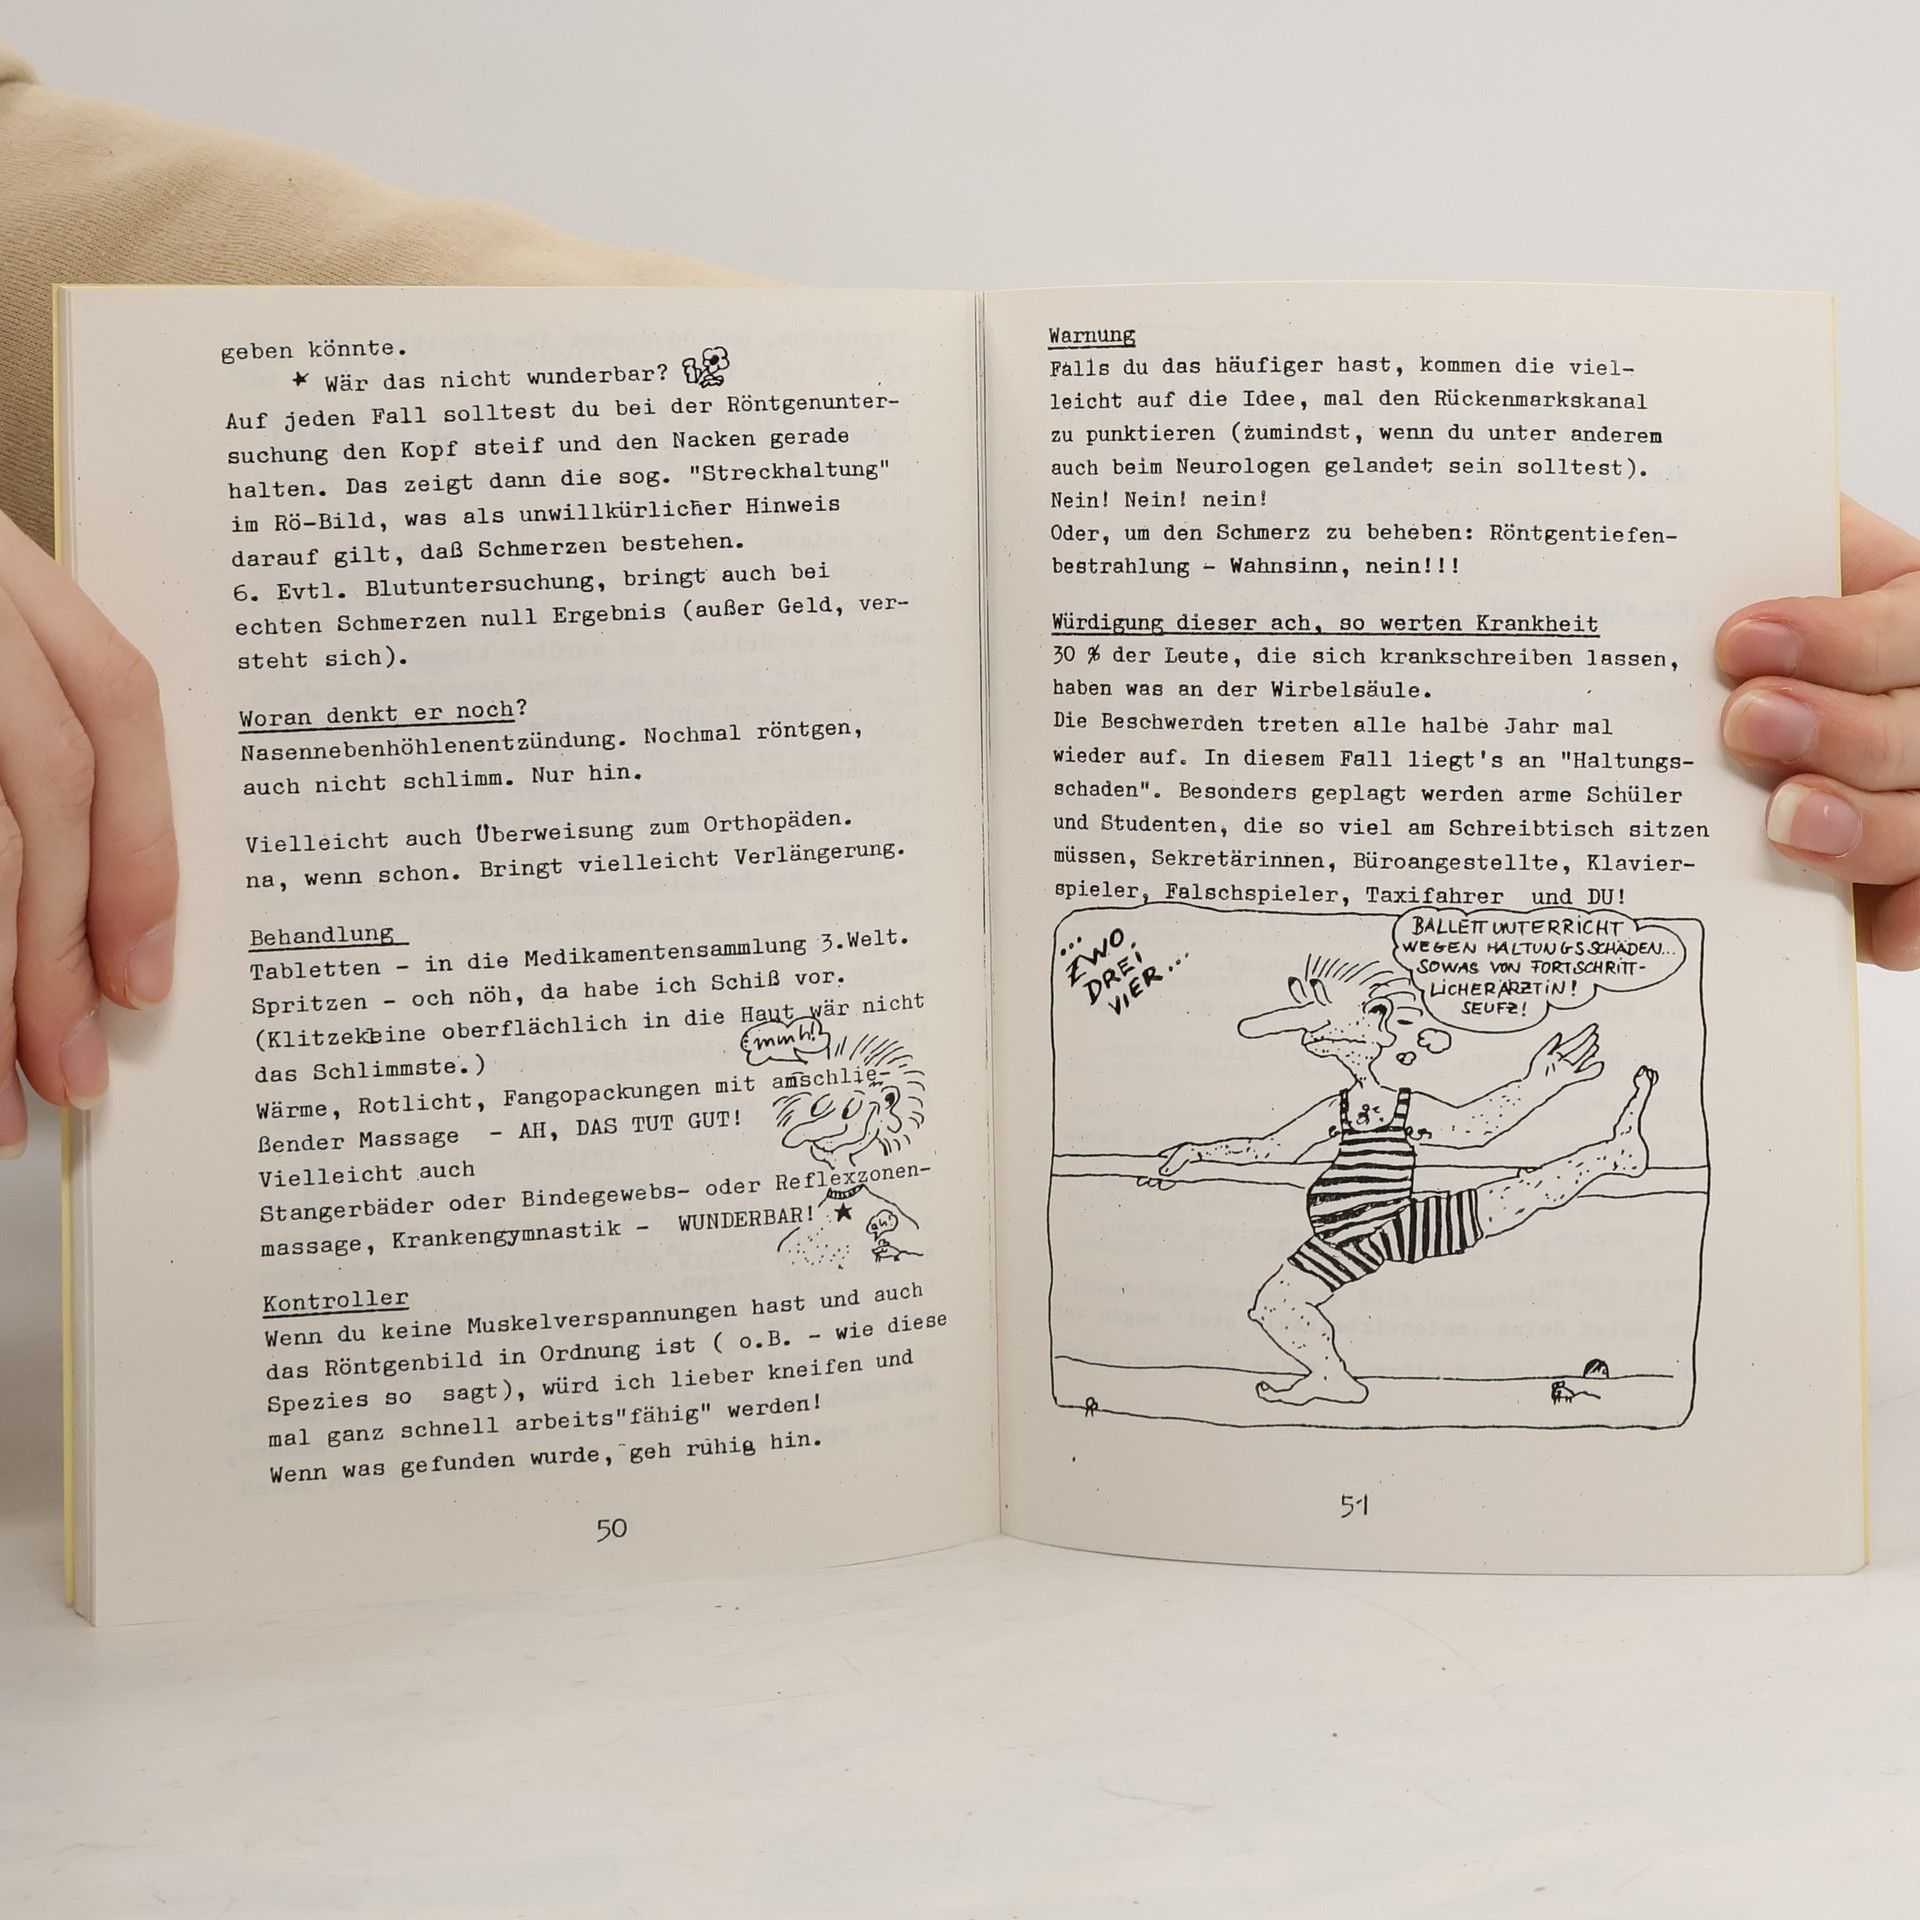 geben könnte.
* Wär das nicht wunderbar?
Auf jeden Fall solltest du bei der Röntgenunter-
suchung den Kopf steif und den Nacken gerade
halten. Das zeigt dann die sog. "Streckhaltung"
im Rö-Bild, was als unwillkürlicher Hinweis
darauf gilt, daß Schmerzen bestehen.
6. Evtl. Blutuntersuchung, bringt auch bei
echten Schmerzen null Ergebnis (außer Geld, ver-
steht sich).
Woran denkt er noch?
Nasennebenhöhlenentzündung. Nochmal röntgen,
auch nicht schlimm. Nur hin.
Vielleicht auch Überweisung zum Orthopäden.
na, wenn schon. Bringt vielleicht Verlängerung.
Behandlung
Tabletten - in die Medikamentensammlung 3.Welt.
Spritzen - och nöh, da habe ich Schiß vor.
(Klitzekleine oberflächlich in die Haut wär nicht
das Schlimmste.)
mmh!
Wärme, Rotlicht, Fangopackungen mit anschlie-
ßender Massage - AH, DAS TUT GUT!
Vielleicht auch
Stangerbäder oder Bindegewebs- oder Reflexzonen-
massage, Krankengymnastik - WUNDERBAR!
ah!
Kontroller
Wenn du keine Muskelverspannungen hast und auch
das Röntgenbild in Ordnung ist ( o.B. - wie diese
Spezies so sagt), würd ich lieber kneifen und
mal ganz schnell arbeits"fähig" werden!
Wenn was gefunden wurde, geh ruhig hin.
50
Warnung
Falls du das häufiger hast, kommen die viel-
leicht auf die Idee, mal den Rückenmarkskanal
zu punktieren (zumindst, wenn du unter anderem
auch beim Neurologen gelandet sein solltest).
Nein! Nein! nein!
Oder, um den Schmerz zu beheben: Röntgentiefen-
bestrahlung - Wahnsinn, nein!!!
Würdigung dieser ach, so werten Krankheit
30 % der Leute, die sich krankschreiben lassen,
haben was an der Wirbelsäule.
Die Beschwerden treten alle halbe Jahr mal
wieder auf. In diesem Fall liegt's an "Haltungs-
schaden". Besonders geplagt werden arme Schüler
und Studenten, die so viel am Schreibtisch sitzen
müssen, Sekretärinnen, Büroangestellte, Klavier-
spieler, Falschspieler, Taxifahrer und DU!
...
ZWO,
DREI
VIER...
BALLETTUNTERRICHT
WEGEN HALTUNGSSCHÄDEN...
SOWAS VON FORTSCHRITT-
LICHERÄRZTIN!
SEUFZ!
51